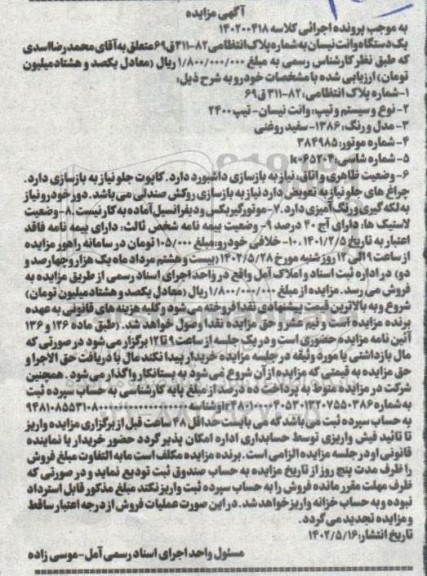 آگهی مزایده
به موجب پرونده اجرائی کلاسه ۱۴۰۲۰۰۴۱۸
یک دستگاه وانت نیسان به شماره پلاک انتظامی ۸۲-۳۱۱ق۶۹ متعلق به آقای محمدرضا اسدی
که طبق نظر کارشناس رسمی به مبلغ ۱/۸۰۰/۰۰۰/۰۰۰ ریال (معادل یکصد و هشتاد میلیون
تومان) ارزیابی شده با مشخصات خودرو به شرح ذیل:
۱-شماره پلاک انتظامی: ۸۲-۳۱۱ق۶۹
۲-نوع و سیستم و تیپ: وانت نیسان- تیپ ۲۴۰۰
۳- مدل و رنگ: ۱۳۸۶- سفید روغنی
۴- شماره موتور: ۳۸۴۹۸۵
۵- شماره شاسی: k۰۶۵۲۰۴
۶- وضعیت ظاهری و اتاق: نیاز به بازسازی داشبورد دارد. کاپوت جلو نیاز به بازسازی دارد.
چراغ های جلو نیاز به تعویض دارد نیاز به بازسازی روکش صندلی می باشد. دور خودرو نیاز
به لکه گیری و رنگ آمیزی دارد. ۷-موتور گیربکس و دیفرانسیل آماده به کار نیست. ۸-وضعیت
لاستیک ها: دارای آج ۴۰ درصد ۹- وضعیت بیمه نامه شخص ثالث: دارای بیمه نامه فاقد
اعتبار به تاریخ ۱۴۰۱/۲/۵ ۱۰- خلافی خودرو: مبلغ ۱۰۵/۰۰۰ تومان در سامانه راهور مزایده
از ساعت ۹ الی ۱۲ روز شنبه مورخ ۱۴۰۲/۵/۲۸ (بیست و هشتم مرداد ماه یک هزار و چهارصد و
دو) در اداره ثبت اسناد و املاک آمل واقع در واحد اجرای اسناد رسمی از طریق مزایده به
فروش می رسد. مزایده از مبلغ ۱/۸۰۰/۰۰۰/۰۰۰ ریال (معادل یکصد و هشتاد میلیون تومان)
شروع و به بالاترین قیمت پیشنهادی نقدا فروخته می شود و کلیه هزینه های قانونی به عهده
برنده مزایده است و نیم عشر و حق مزایده نقدا وصول خواهد شد. (طبق ماده ۱۲۶ و ۱۳۶
آئین نامه مزایده حضوری است و در یک جلسه از ساعت ۹ تا ۱۲ برگزار می شود در صورتی که
مال بازداشتی یا مورد وثیقه در جلسه مزایده خریدار پیدا نکند مال با دریافت حق الاجرا و
حق مزایده به قیمتی که مزایده از آن شروع می شود به بستانکار واگذار می شود. همچنین
شرکت در مزایده منوط به پرداخت ده درصد از مبلغ پایه کارشناسی به حساب سپرده ثبت
به شماره و شناسه
به حساب سپرده ثبت می باشد که می بایست حداقل ۴۸ ساعت قبل از برگزاری مزایده واریز
تا تائید فیش واریزی توسط حسابداری اداره امکان پذیر گردد حضور خریدار یا نماینده
قانونی او در جلسه مزایده الزامی است. برنده مزایده مکلف است مابه التفاوت مبلغ فروش
را ظرف مدت پنج روز از تاریخ مزایده به حساب صندوق ثبت تودیع نماید و در صورتی که
ظرف مهلت مقرر مانده فروش را به حساب سپرده ثبت واریز نکند مبلغ مذکور قابل استرداد
نبوده و به حساب خزانه واریز خواهد شد. در این صورت عملیات فروش از درجه اعتبار ساقط
و مزایده تجدید می گردد.
تاریخ انتشار: ۱۴۰۲/۵/۱۶
مسئول واحد اجرای اسناد رسمی آمل- موسی زاده